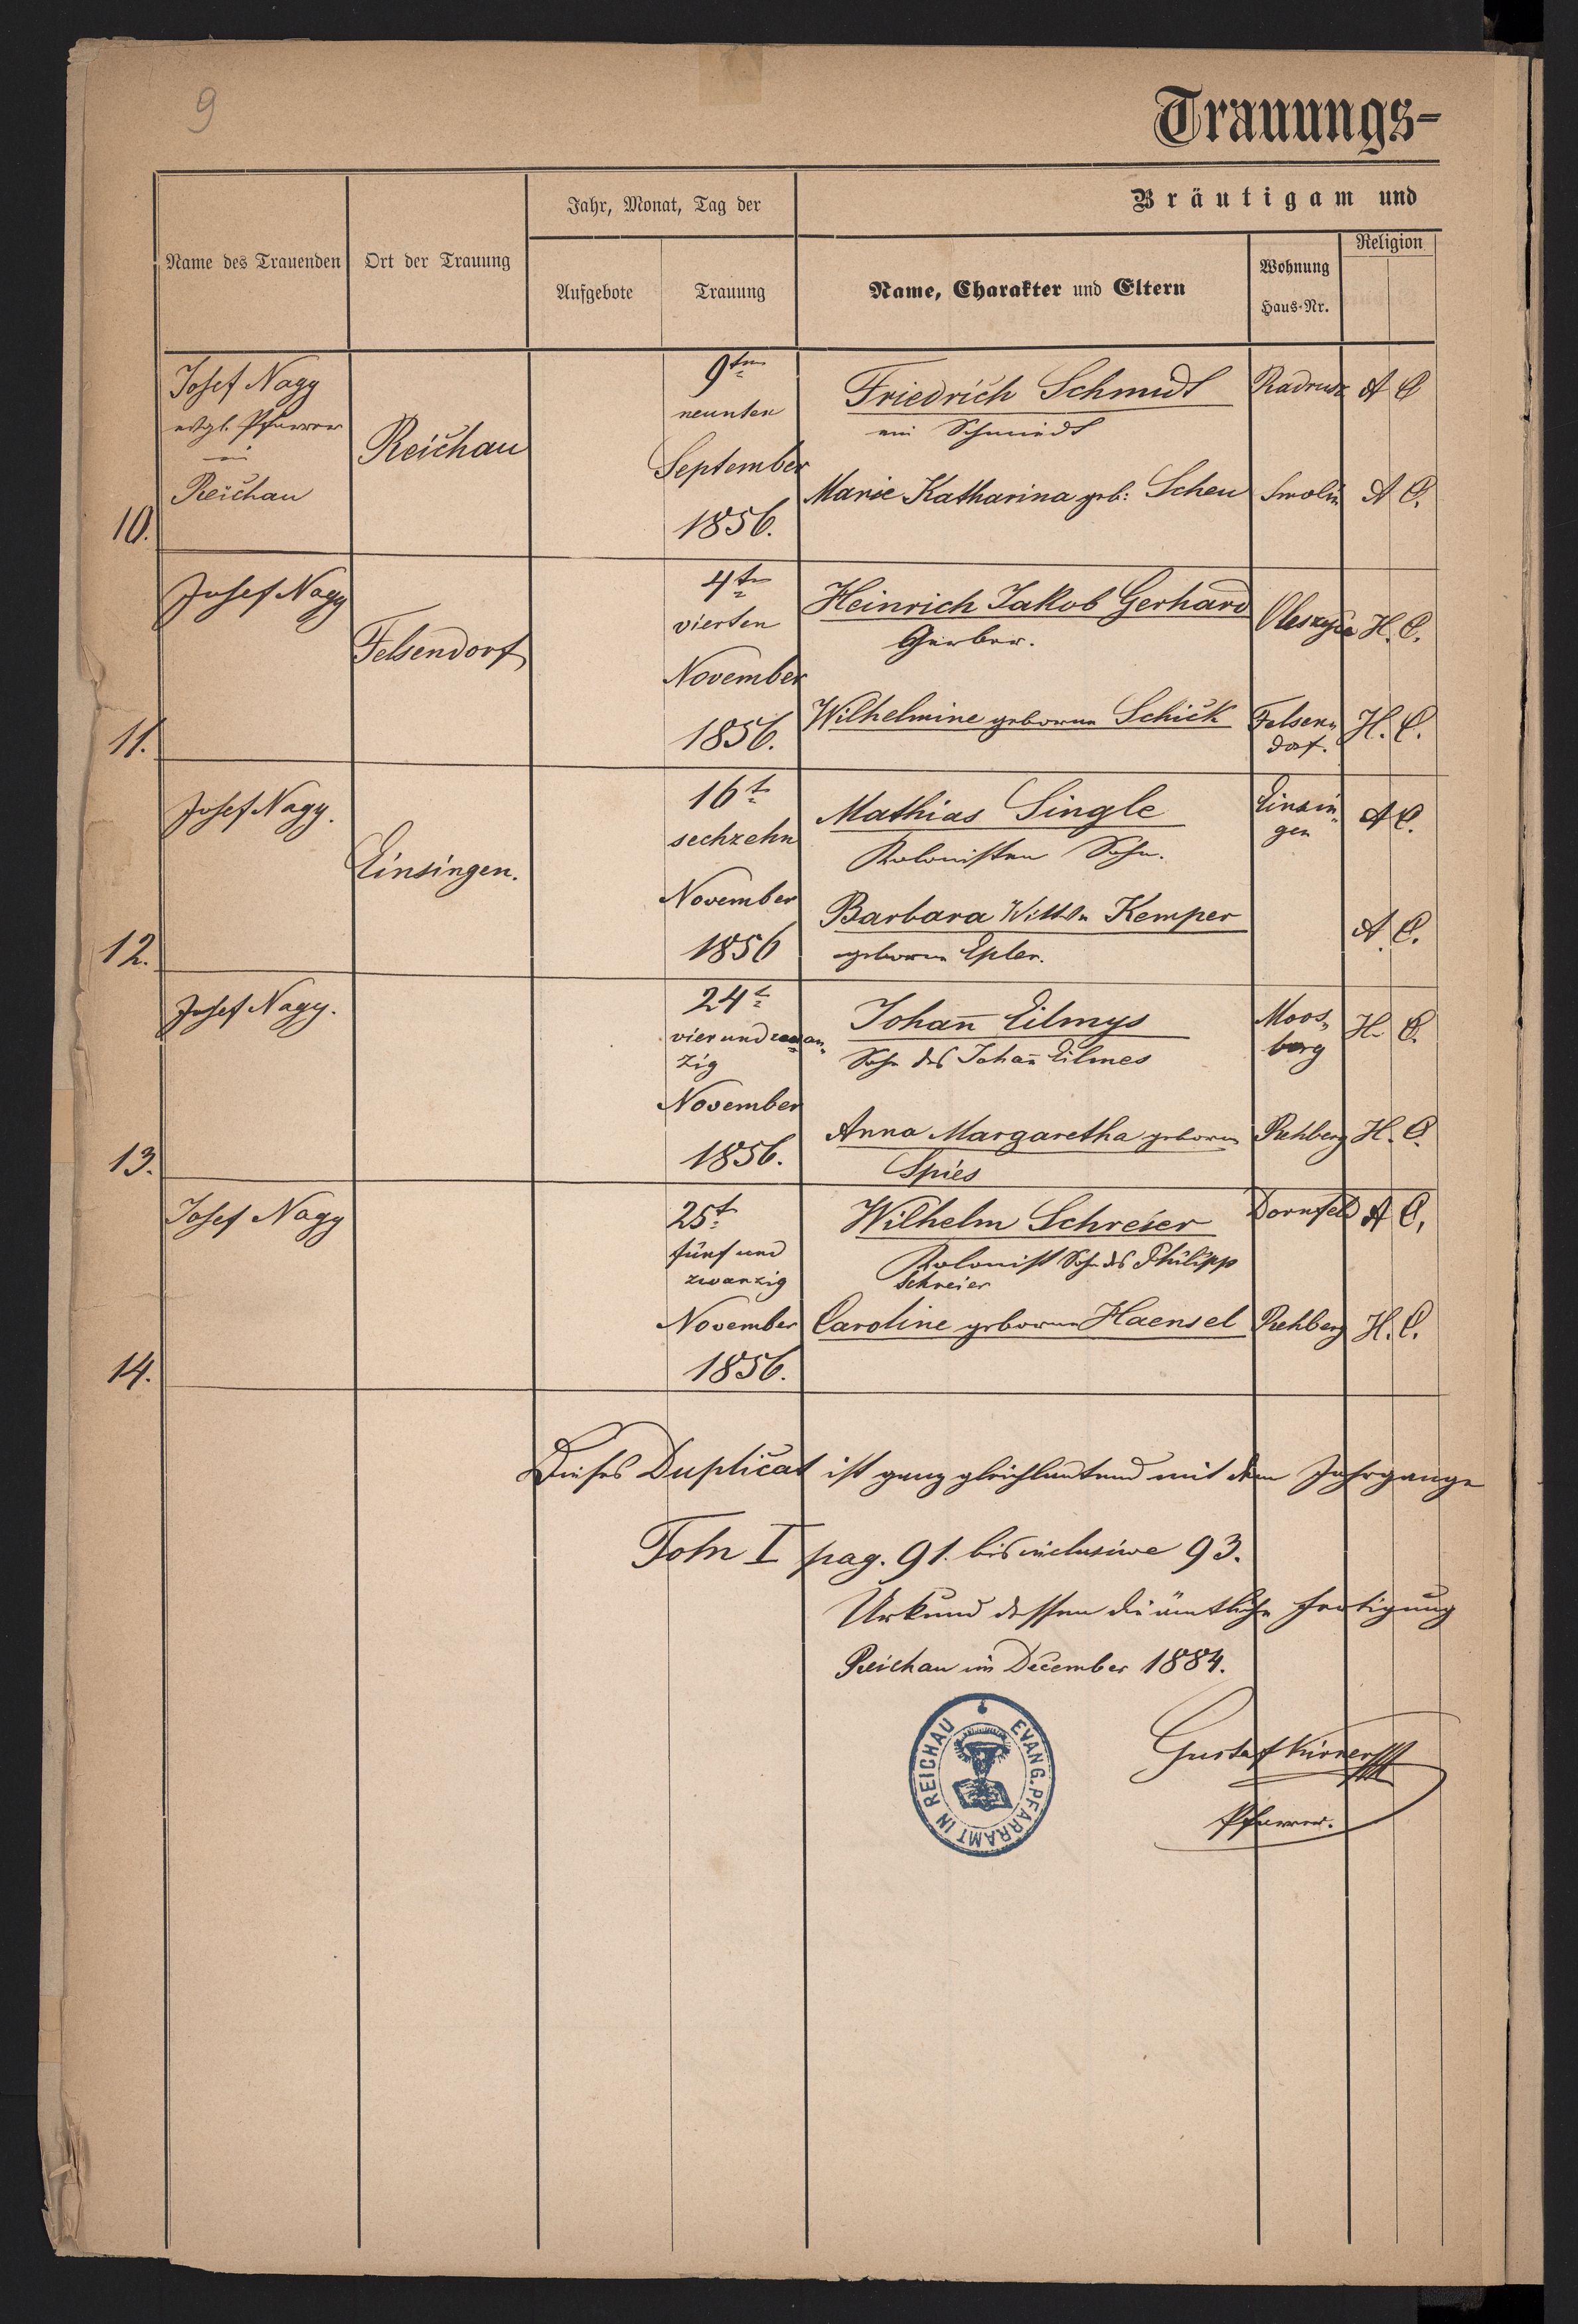 9
Trauungs-
Name des Trauenden
Ort der Trauung
Jahr, Monat, Tag der
Aufgebote
Trauung
Bräutigam und
Name, Charakter und Eltern
Wohnung
Haus-Nr.
Religion
10.
Josef Nagy
evgl. Pfarrer
in
Reichau
Reichau
9ten
neunten
September
1856.
Friedrich Schmidt
ein Schmidt
Radrusz
A C
Marie Katharina geb: Scheu
Smolin
A C.
11.
Josef Nagy
Felsendorf
4ten
vierten
November
1856.
Heinrich Jakob Gerhard
Gerber.
Oleszyce
H. C.
Wilhelmine geborne Schick
Felsen„
dorf.
H. C.
12.
Josef Nagy.
Einsingen.
16t
sechzehn
November
1856
Mathias Single
Kolonisten Sohn.
Einsin„
gen
A C.
Barbara Kemper
geborne Epler.
A. C.
13.
Josef Nagy.
24t
vier und zwan„
zig
November
1856.
Johan̄ Eilmys
Sohn des Johan̄ Eilmes
Moos„
berg
H. C.
Anna Margaretha geborne
Spies
Rehberg
H. C.
14.
Josef Nagy
25t
fünf und
zwanzig
November
1856.
Wilhelm Schreier
Kolonist Sohn des Philipp
Schreier
Dornfeld
A C.
Caroline geborne Haensel
Rehberg
H. C.
Dieses Duplicat ist ganz gleichlautend mit dem Jahrgange
Tom I pag. 91. bis inclusive 93.
Urkund dessen die ämtliche Fertigung
Reichau im December 1884.
EVANG. PFARRAMT IN REICHAU
Gustaf
Pfarrer.